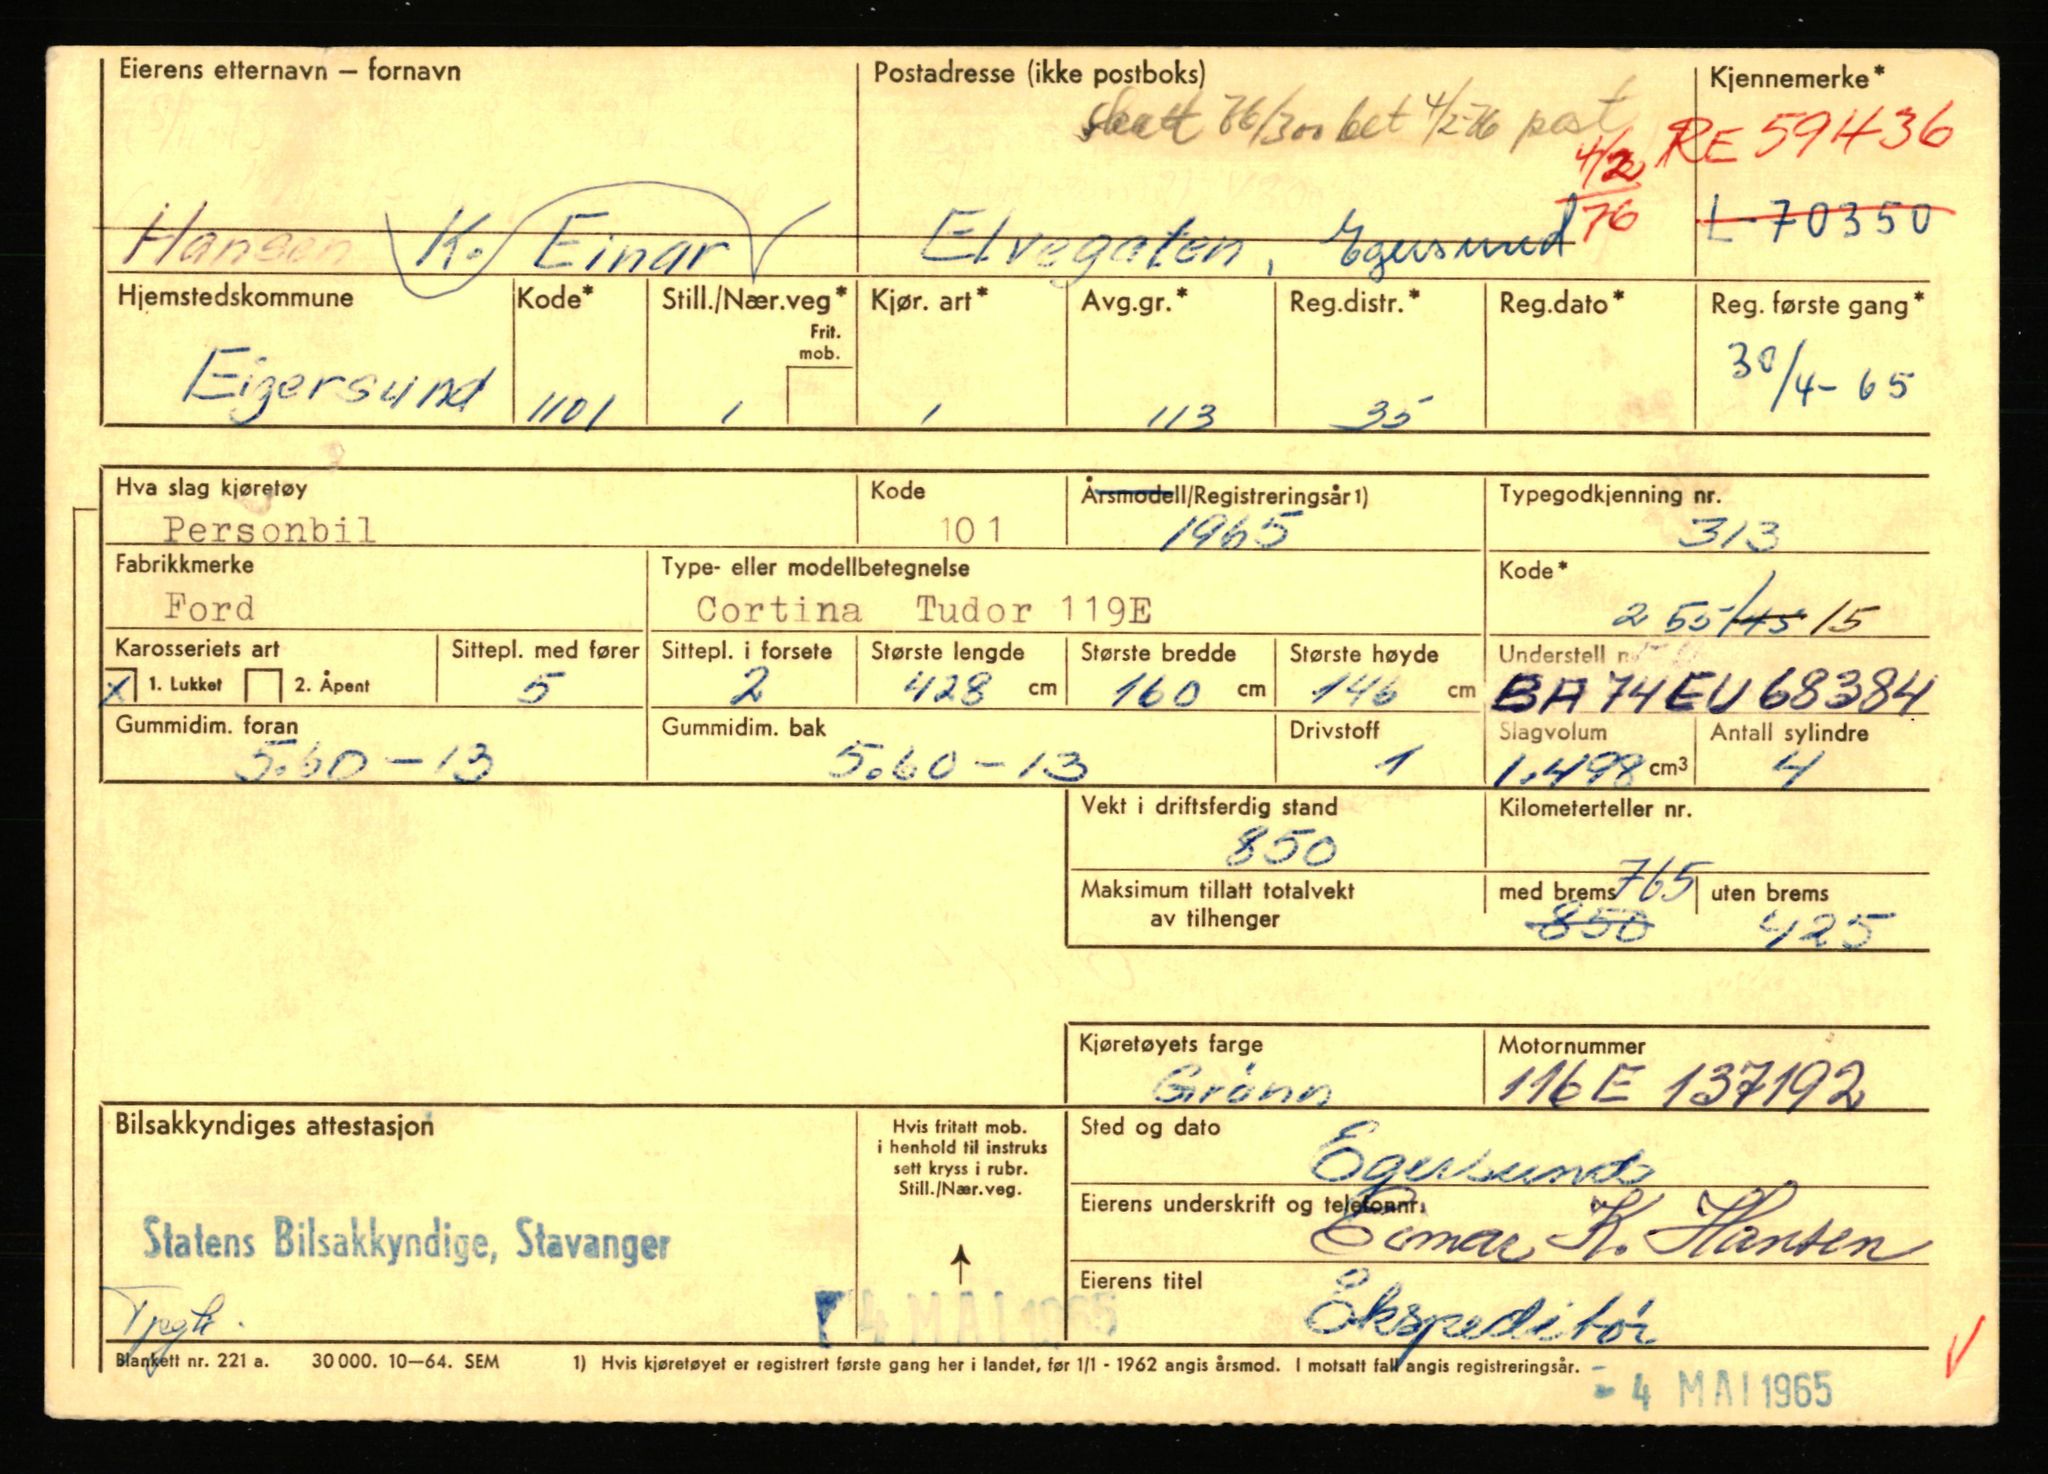 Eierens etternavn — fornavn Postadresse (ikke postboks) Kjennemerke*
skatt 76/300 bet 4/2-76 post
4/2 76 RE 59436
L-70350
Hansen K. Einar Elvegaten, Egersund
Hjemstedskommune Kode* Still./Nær.veg* Kjør. art* Avg.gr.* Reg.distr.* Reg.dato* Reg. første gang*
Frit. mob.
Eigersund 1101 1 1 113 35 30/4-65
Hva slag kjøretøy Kode Årsmodell/Registreringsår1) Typegodkjenning nr.
Personbil 101 1965 313
Fabrikkmerke Type- eller modellbetegnelse Kode*
Ford Cortina Tudor 119E 255/45 15
Karosseriets art Sittepl. med fører Sittepl. i forsete Største lengde Største bredde Største høyde Understell nr.
x 1. Lukket 2. Åpent 5 2 428 cm 160 cm 146 cm BA74EU68384
Gummidim. foran Gummidim. bak Drivstoff Slagvolum Antall sylindre
5.60-13 5.60-13 1 1.498 cm3 4
Vekt i driftsferdig stand Kilometerteller nr.
850
Maksimum tillatt totalvekt av tilhenger med brems 765 uten brems
850 425
Kjøretøyets farge Motornummer
Grønn 116E 137192
Bilsakkyndiges attestasjon Hvis fritatt mob. i henhold til instruks sett kryss i rubr. Still./Nær.veg. Sted og dato
Egersund
Eierens underskrift og telefonnr.
Statens Bilsakkyndige, Stavanger Einar K. Hansen
Eierens titel
4 MAI 1965 Ekspeditør
Blankett nr. 221 a. 30 000. 10—64. SEM 1) Hvis kjøretøyet er registrert første gang her i landet, før 1/1 - 1962 angis årsmod. I motsatt fall angis registreringsår.
- 4 MAI 1965